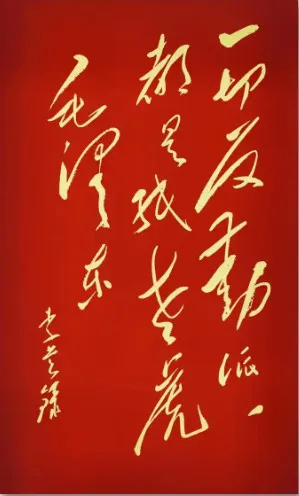 一切反动派、
都是纸老虎
毛泽东